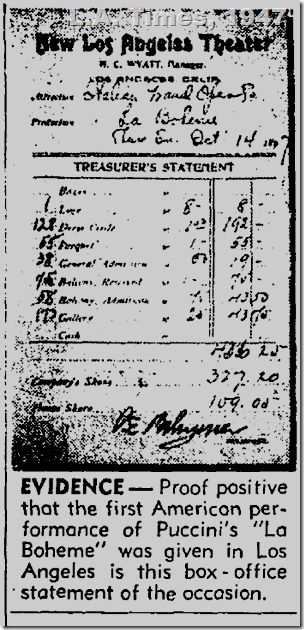 L.A. Times, 1947
New Los Angeles Theater
H. C. WYATT, Manager
LOS ANGELES CALIF.
Attraction Italian Grand Opera Co
Production La Boheme
Oct 14 1897
TREASURER'S STATEMENT
Boxes
1 Loge 8- 8-
128 Dress Circle 192-
55 Parquet 1- 55-
38 General Admission 50 19-
Balcony, Reserved
Balcony, Admission 50
Gallery 25 75
Cash
436 25
Company's Share 327 20
House Share 109 05
EVIDENCE — Proof positive
that the first American per-
formance of Puccini's "La
Boheme" was given in Los
Angeles is this box-office
statement of the occasion.